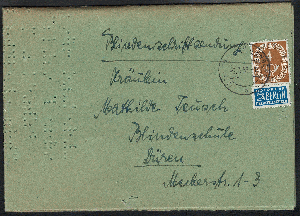 Blindenschriftsendung
Fräulein
Mathilde Teusch
Blindenschule
Düren
Meckerstr. 1-3
BERLIN